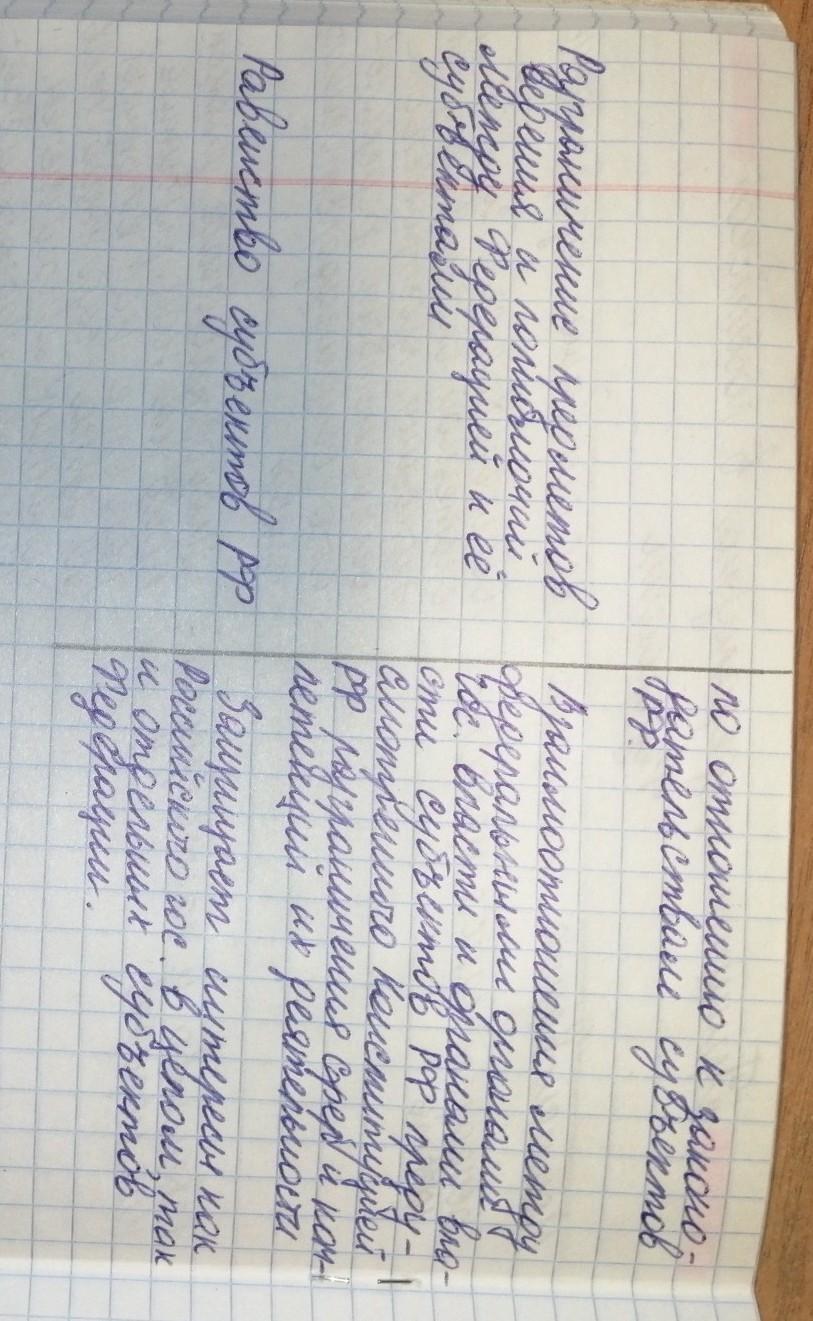 по отношению к законо-
дательствам субъектов
РФ.
Разграничение предметов
ведения и полномочий
между Федерацией и её
субъектами
Взаимоотношения между
федеральными органами
гос. власти и органами вла-
сти субъектов РФ преду-
смотренного Конституцией
РФ разграничения сфер и ком-
петенций их деятельности
Равенство субъектов РФ
Защищает интересы как
Российского гос. в целом, так
и отдельных субъектов
Федерации.